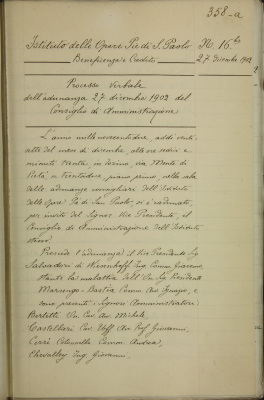 358-a
Istituto delle Opere Pie di S. Paolo N. 16
Beneficenza e Credito 27 Dicembre 1902
Processo Verbale
dell'adunanza 27 dicembre 1902 del
Consiglio di Amministrazione
L'anno millenovecentodue, addì venti-
sette del mese di dicembre alle ore sedici e
minuti trenta, in Torino via Monte di
Pietà, n. trentadue, piano primo nella sala
delle adunanze consigliari dell'Istituto
delle Opere Pie di San Paolo, si è adunato,
per invito del Signor Vice Presidente, il
Consiglio di Amministrazione dell'Istituto
stesso.
Presiede l'adunanza il Vice Presidente Sig.
Salvadori di Wiesenhoff Ing. Comm. Giacomo,
stante la malattia dell'On. Sig. Presidente
Marsengo-Bastia Comm. Avv. Ignazio, e
sono presenti i Signori Amministratori:
Bertetti Cav. Avv. Michele,
Castellari Cav. Uff. Avv. Prof. Giovanni,
Colonnello Comm. Andrea,
Chevalley Ing. Giovanni.